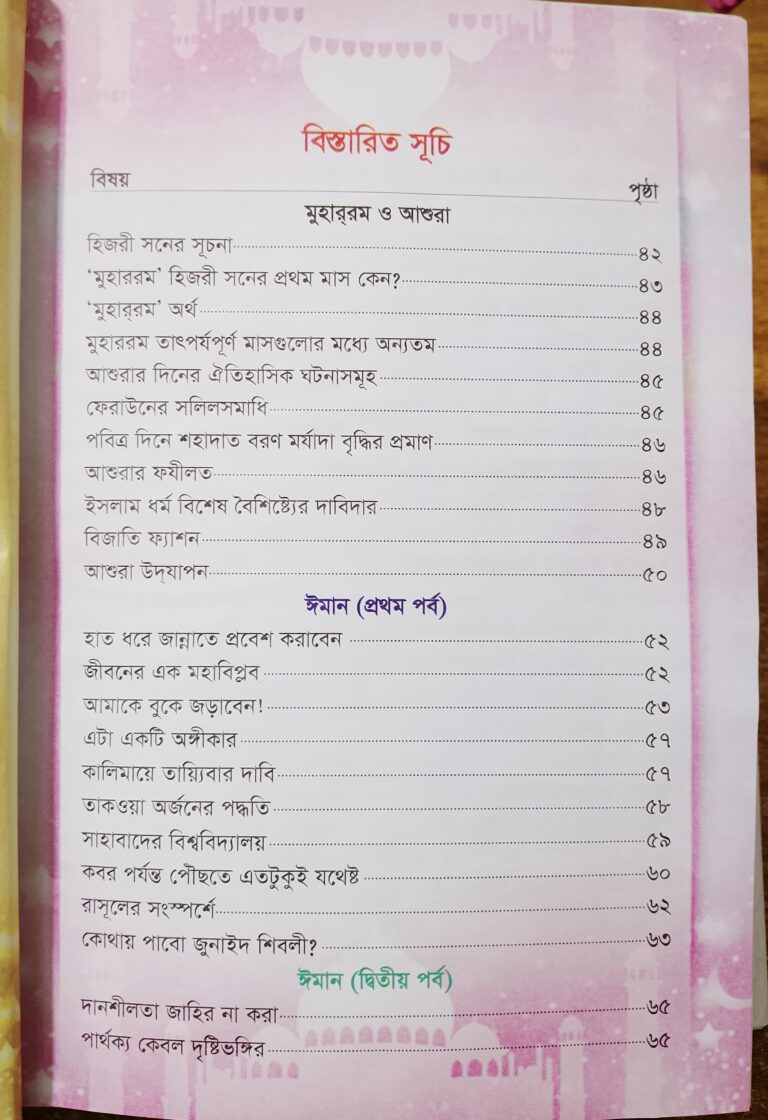 বিস্তারিত সূচি
বিষয় পৃষ্ঠা
মুহার্‌রম ও আশুরা
হিজরী সনের সূচনা ৪২
‘মুহাররম’ হিজরী সনের প্রথম মাস কেন? ৪৩
‘মুহার্‌রম’ অর্থ ৪৪
মুহাররম তাৎপর্যপূর্ণ মাসগুলোর মধ্যে অন্যতম ৪৪
আশুরার দিনের ঐতিহাসিক ঘটনাসমূহ ৪৫
ফেরাউনের সলিলসমাধি ৪৫
পবিত্র দিনে শহাদাত বরণ মর্যাদা বৃদ্ধির প্রমাণ ৪৬
আশুরার ফযীলত ৪৬
ইসলাম ধর্ম বিশেষ বৈশিষ্ট্যের দাবিদার ৪৮
বিজাতি ফ্যাশন ৪৯
আশুরা উদ্‌যাপন ৫০
ঈমান (প্রথম পর্ব)
হাত ধরে জান্নাতে প্রবেশ করাবেন ৫২
জীবনের এক মহাবিপ্লব ৫২
আমাকে বুকে জড়াবেন! ৫৩
এটা একটি অঙ্গীকার ৫৭
কালিমায়ে তায়্যিবার দাবি ৫৭
তাকওয়া অর্জনের পদ্ধতি ৫৮
সাহাবাদের বিশ্ববিদ্যালয় ৫৯
কবর পর্যন্ত পৌঁছতে এতটুকুই যথেষ্ট ৬০
রাসূলের সংস্পর্শে ৬২
কোথায় পাবো জুনাইদ শিবলী? ৬৩
ঈমান (দ্বিতীয় পর্ব)
দানশীলতা জাহির না করা ৬৫
পার্থক্য কেবল দৃষ্টিভঙ্গির ৬৫